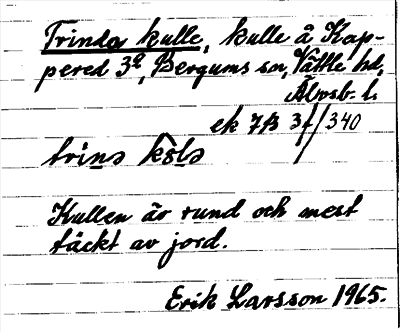 Trinda kulle, kulle å Kap-
pered 3², Bergums sn, Vättle hd,
Älvsb. l.
ek 7B 3f/340
trinə
Kullen är rund och mest
täckt av jord.
Erik Larsson 1965.